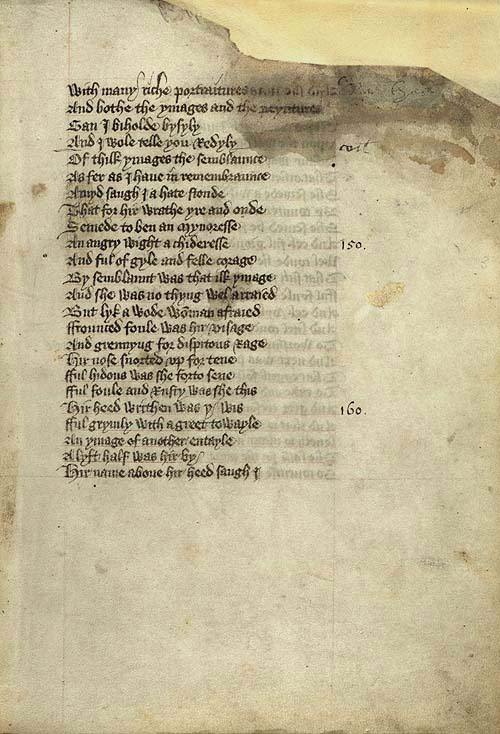 With many riche portraitures
And bothe the ymages and the peyntures
Gan I biholde bysyly
And I wole telle you redyly
Of thilk ymages the semblaunce
As fer as I haue in remembraunce
Amyd saugh I a hate stonde
That for hir wrathe yre and onde
Semede to ben an mynoresse
An angry wight a chideresse 150.
And ful of gyle and felle corage
By semblaunt was that ilk ymage
And she was no thyng wel arraied
But lyk a wode woman afraied
ffrounced foule was hir visage
And grennyng for dispitous rage
Hir nose snorted vp for tene
fful hidous was she forto sene
fful foule and rusty was she this
Hir heed writhen was y wis 160.
fful grymly with a greet towayle
An ymage of another entayle
A lyft half was hir by
Hir name aboue hir heed saugh I